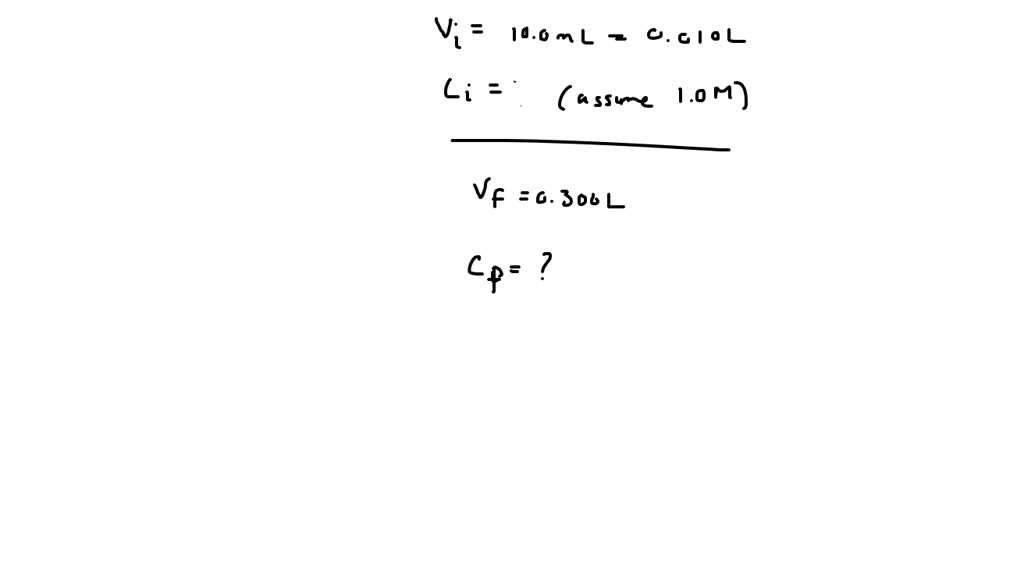 Vi = 10.0mL = 0.010L
Ci = (assume 1.0M)
Vf = 0.300L
Cf = ?